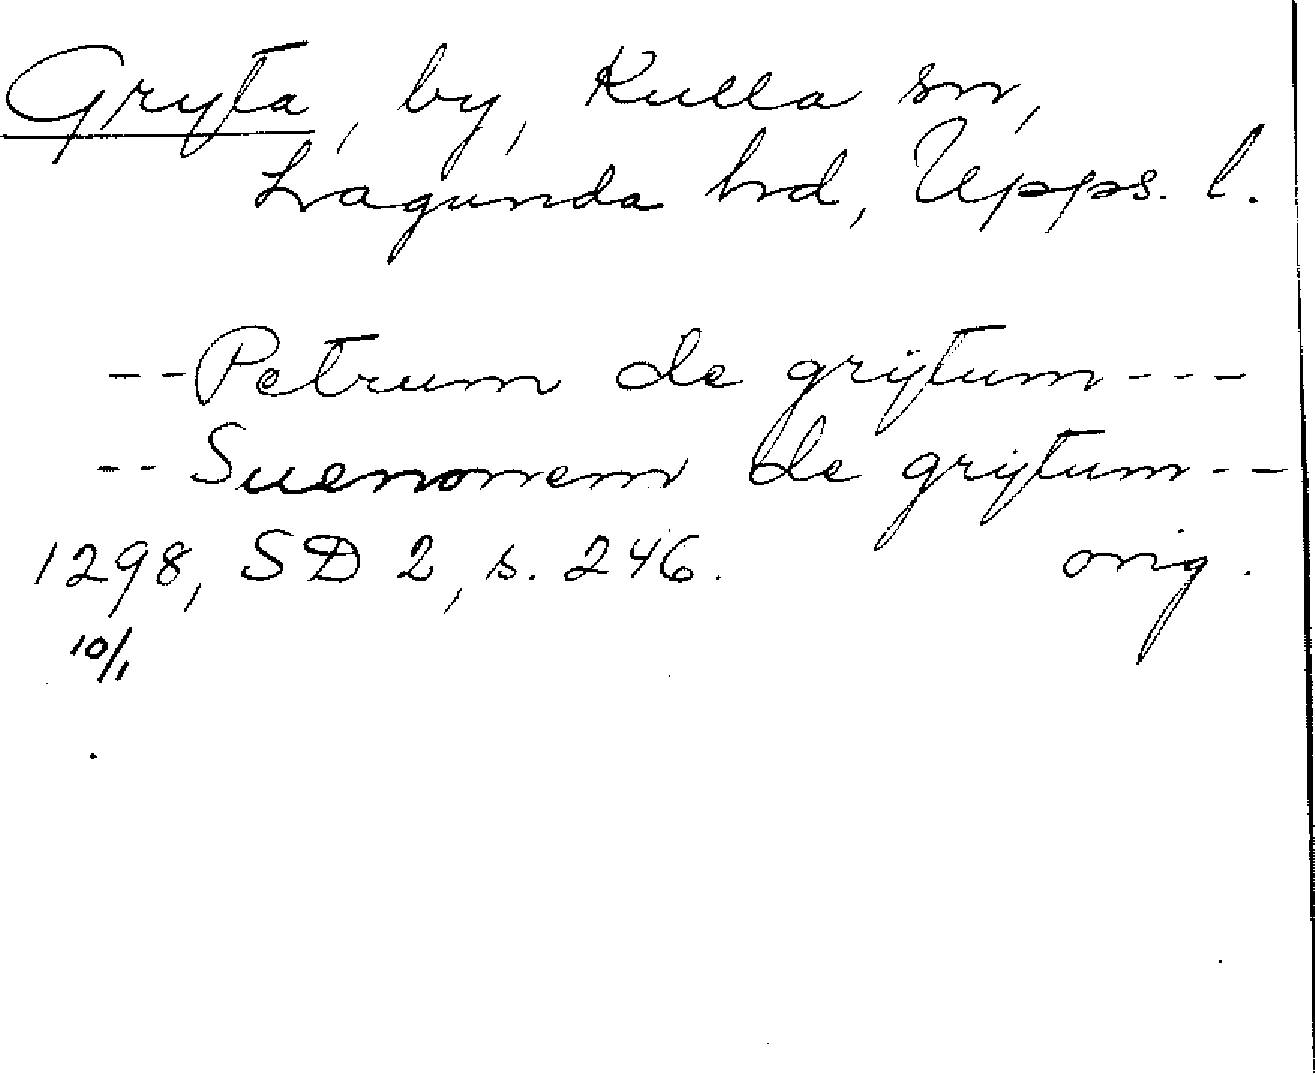 Gryta, by, Kulla sn,
Lagunda hd, Upps. l.
-- Petrum de grijtum ---
-- Suenonem de grijtum --
1298, SD 2, s. 246. orig.
10/1